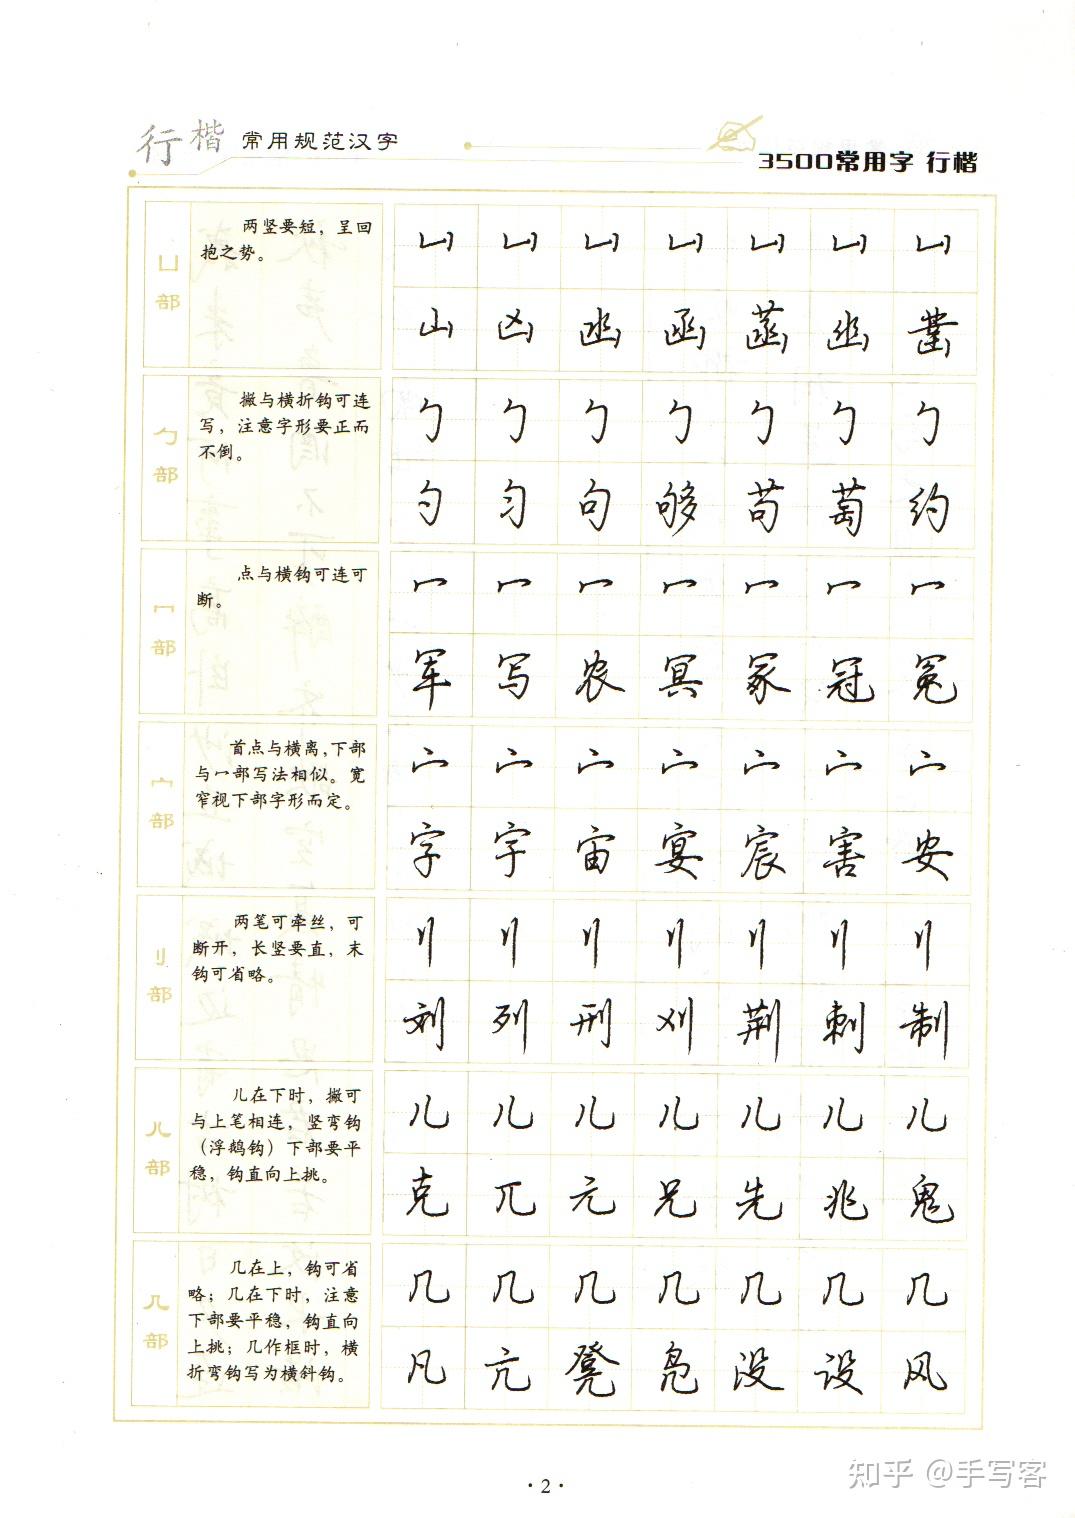 行楷 常用规范汉字
3500常用字 行楷
凵部
两竖要短，呈回
抱之势。
凵 凵 凵 凵 凵 凵 凵
山 凶 凼 函 菡 幽 凿
勹部
撇与横折钩可连
写，注意字形要正而
不倒。
勹 勹 勹 勹 勹 勹 勹
勺 匀 句 够 苟 萄 约
冖部
点与横钩可连可
断。
冖 冖 冖 冖 冖 冖 冖
军 写 农 冥 冢 冠 冤
宀部
首点与横离，下部
与冖部写法相似。宽
窄视下部字形而定。
宀 宀 宀 宀 宀 宀 宀
字 宇 宙 宴 宸 害 安
刂部
两笔可牵丝，可
断开，长竖要直，末
钩可省略。
刂 刂 刂 刂 刂 刂 刂
刘 列 刑 刈 荆 刺 制
儿部
儿在下时，撇可
与上笔相连，竖弯钩
（浮鹅钩）下部要平
稳，钩直向上挑。
儿 儿 儿 儿 儿 儿 儿
克 兀 元 兄 先 兆 鬼
几部
几在上，钩可省
略；几在下时，注意
下部要平稳，钩直向
上挑；几作框时，横
折弯钩写为横斜钩。
几 几 几 几 几 几 几
凡 亢 凳 凫 没 设 风
·2·
知乎 @手写客